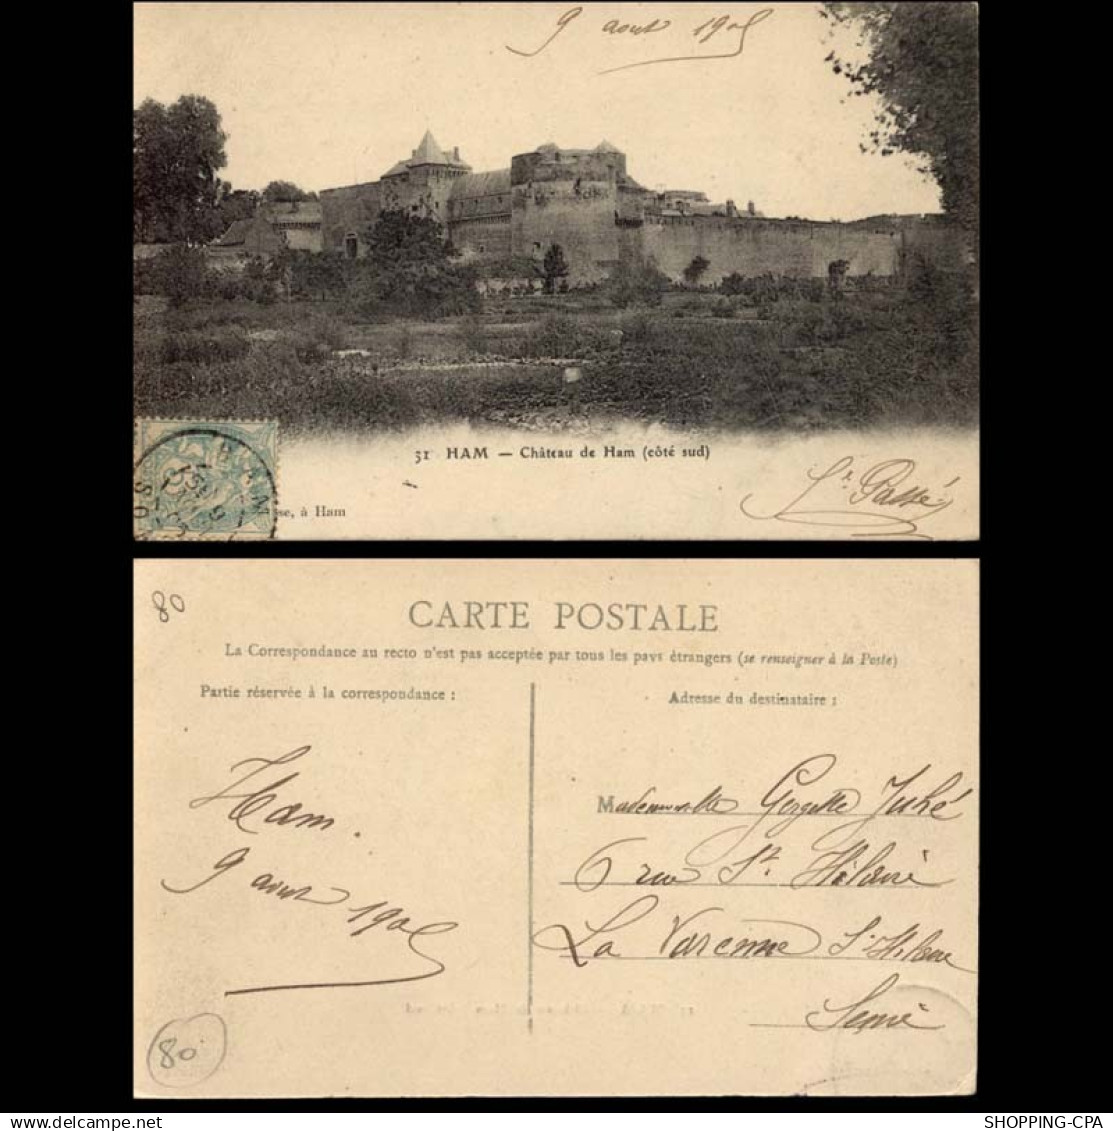 9 aout 1905
31 HAM — Château de Ham (côté sud)
HAM
se, à Ham
80
CARTE POSTALE
La Correspondance au recto n'est pas acceptée par tous les pays étrangers (se renseigner à la Poste)
Partie réservée à la correspondance :
Adresse du destinataire :
Ham.
9 aout 1905
Mademoiselle Gorgette Juhé
6 rue St. Hilaire
La Varenne St Hilaire
Seine
80
SHOPPING-CPA